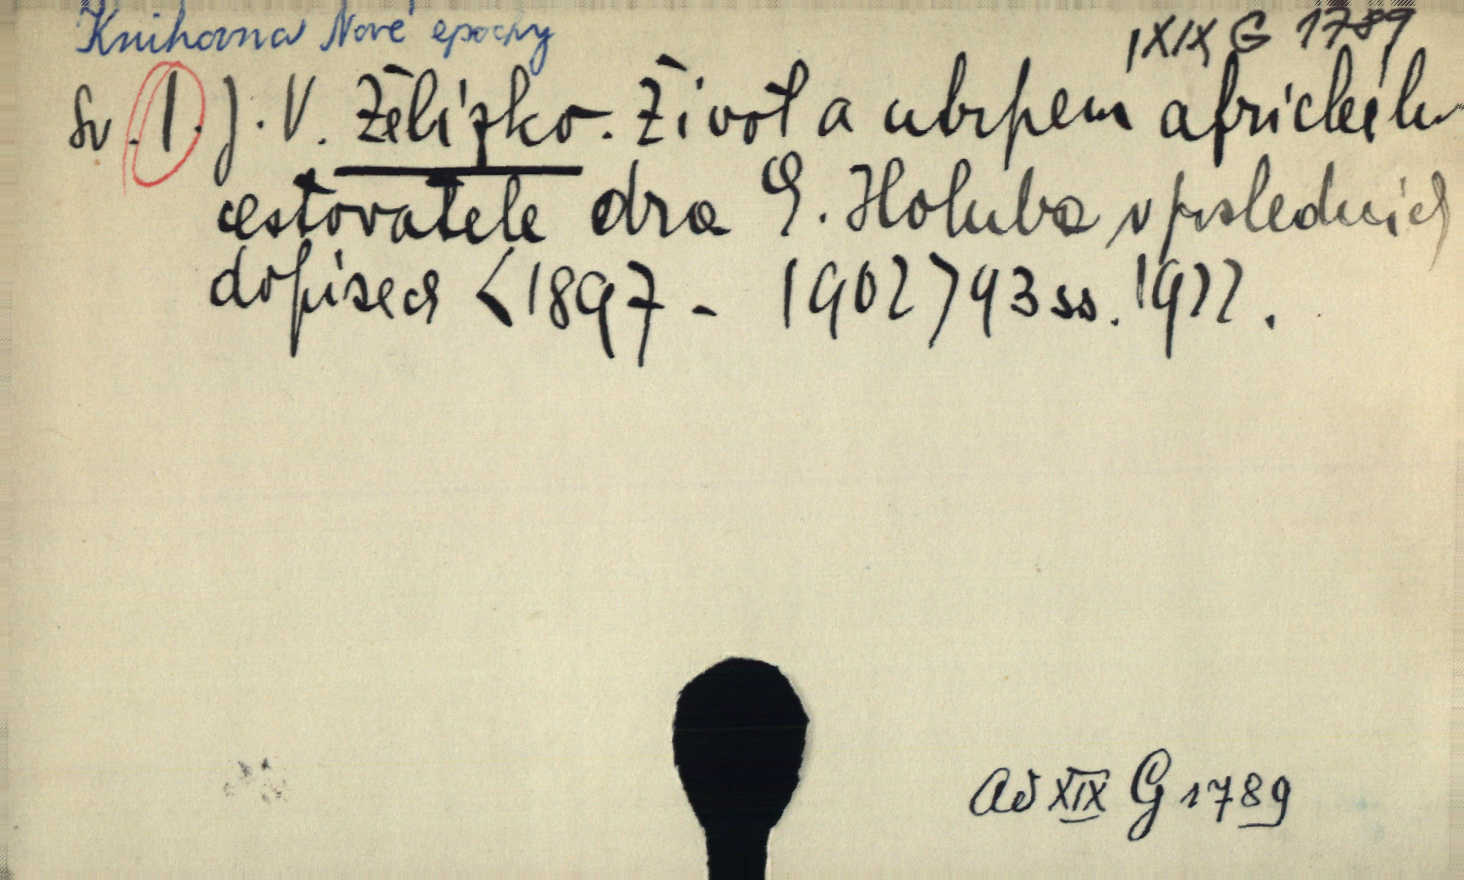 Knihovna Nové epochy
XIX G 1789
Sv. 1. J. V. Želízko. Život a utrpení afrického
cestovatele dra E. Holuba v posledních
dopisech <1897 - 1902> 93 ss. 1922.
Ad XIX G 1789